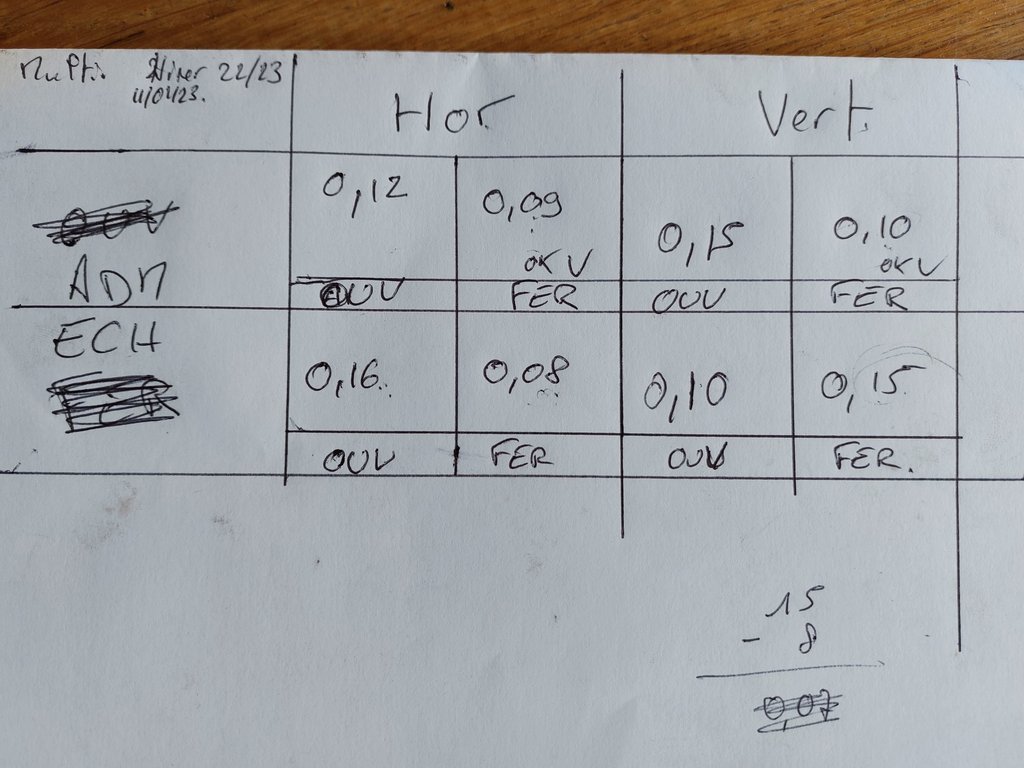 Hiver 22/23
11/01/23.
Hor Vert.
0,12 0,09 0,15 0,10
OK V OK V
ADM OUV FER OUV FER
ECH
0,16 0,08 0,10 0,15
OUV FER OUV FER.
15
- 8
0,07